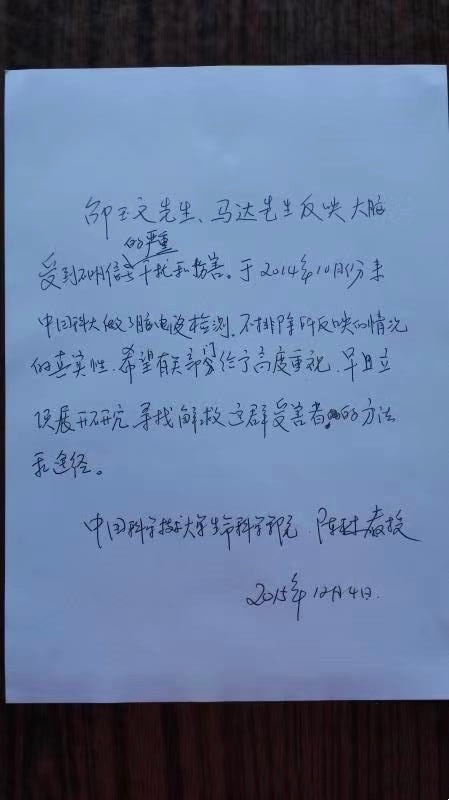 邵玉文先生、马达先生反映大脑
受到不明信号的严重干扰和损害。于2014年10月份来
中国科大做了脑电波检测,不排除所反映的情况
的真实性,希望有关部门给予高度重视,早日立
项展开研究,寻找解救这群受害者的方法
和途径。
中国科学技术大学生命科学学院 陈林教授
2015年12月4日